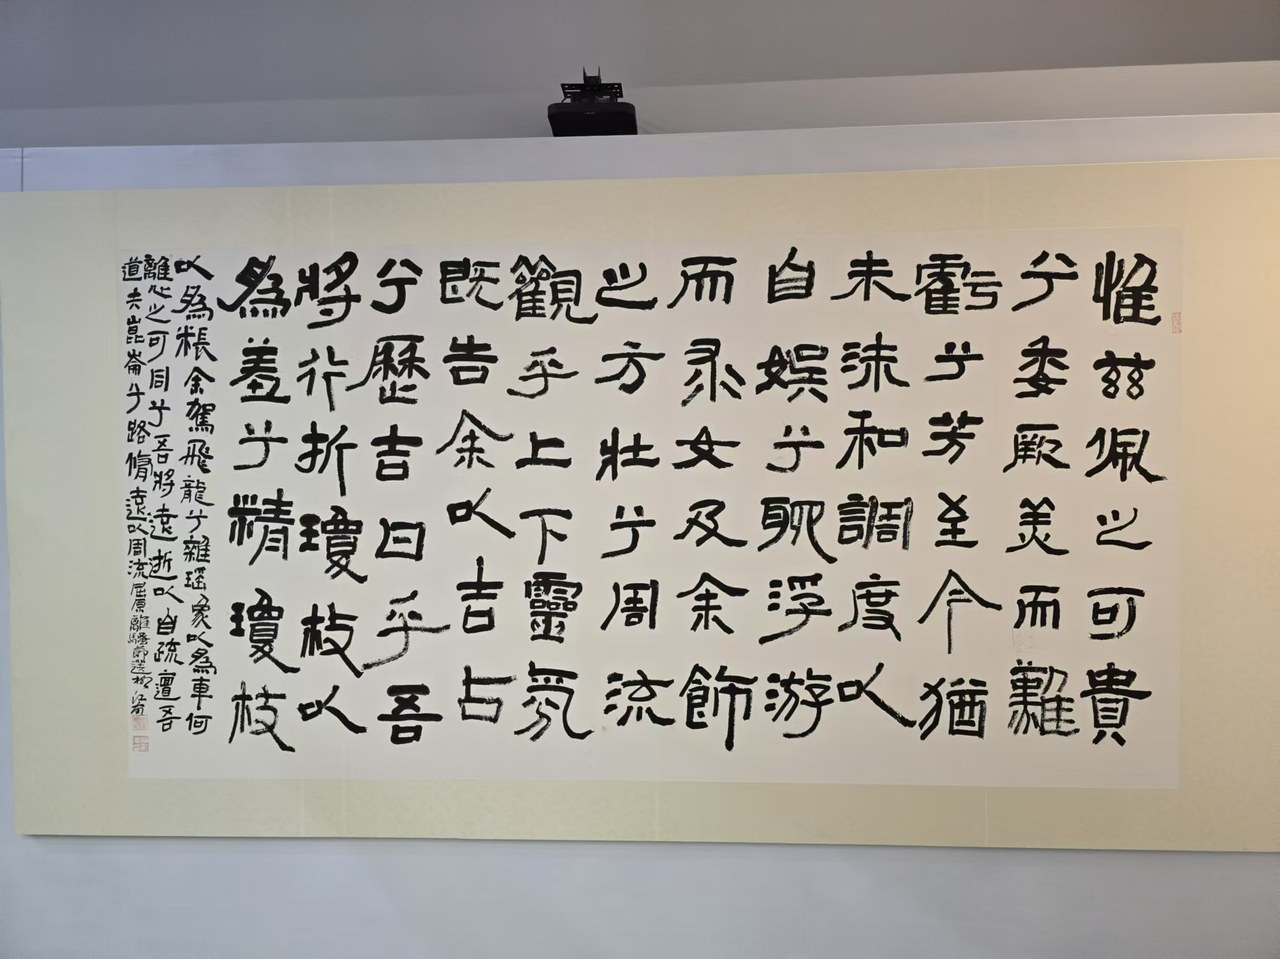 惟兹佩之可貴
兮委厥美而難
虧兮芳至今猶
未沬和調度以
自娛兮聊浮游
而求女及余飾
之方壯兮周流
觀乎上下靈氛
既告余以吉占
兮歷吉日乎吾
將行折瓊枝以
為羞兮精瓊枝
以為粻余駕飛龍兮雜瑤象以為車何
離心之可同兮吾將遠逝以自疏邅吾
道夫崑崙兮路脩遠以周流屈原離騷節選